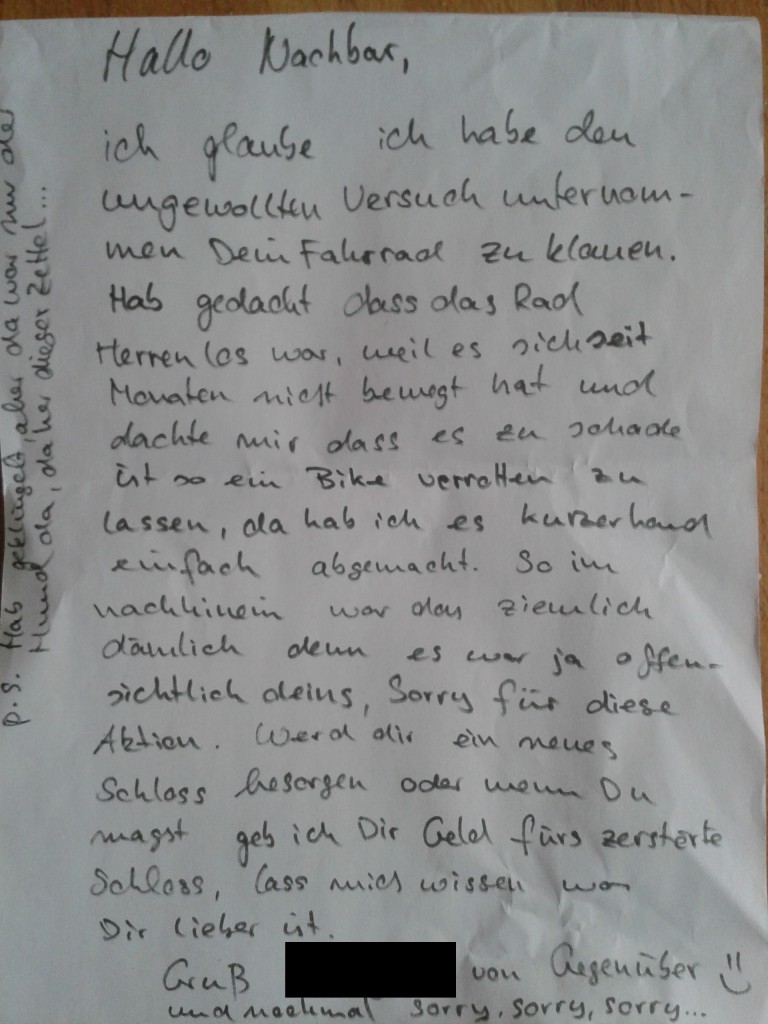 Hallo Nachbar,
ich glaube ich habe den
ungewollten Versuch unternom-
men Dein Fahrrad zu klauen.
Hab gedacht dass das Rad
Herrenlos war, weil es sich seit
Monaten nicht bewegt hat und
dachte mir dass es zu schade
ist so ein Bike verrotten zu
lassen, da hab ich es kurzerhand
einfach abgemacht. So im
nachhinein war das ziemlich
dämlich denn es war ja offen-
sichtlich deins, Sorry für diese
Aktion. Werd dir ein neues
Schloss besorgen oder wenn Du
magst geb ich Dir Geld fürs zerstörte
Schloss, lass mich wissen was
Dir lieber ist.
Gruß von Gegenüber
und nochmal sorry, sorry, sorry...
p.s. Hab geklingelt, aber da war nur der
Hund da, daher dieser Zettel...